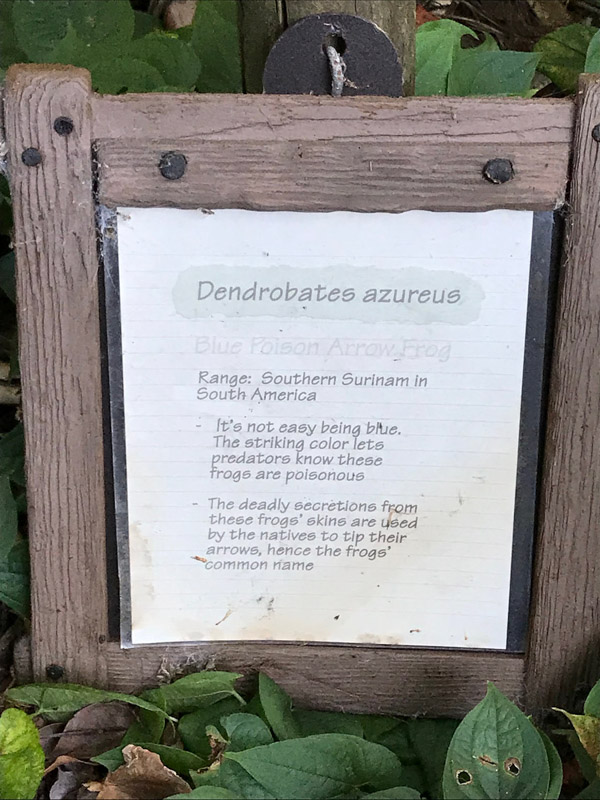 Dendrobates azureus
Blue Poison Arrow Frog
Range: Southern Surinam in
South America
- It's not easy being blue.
The striking color lets
predators know these
frogs are poisonous
- The deadly secretions from
these frogs' skins are used
by the natives to tip their
arrows, hence the frogs'
common name